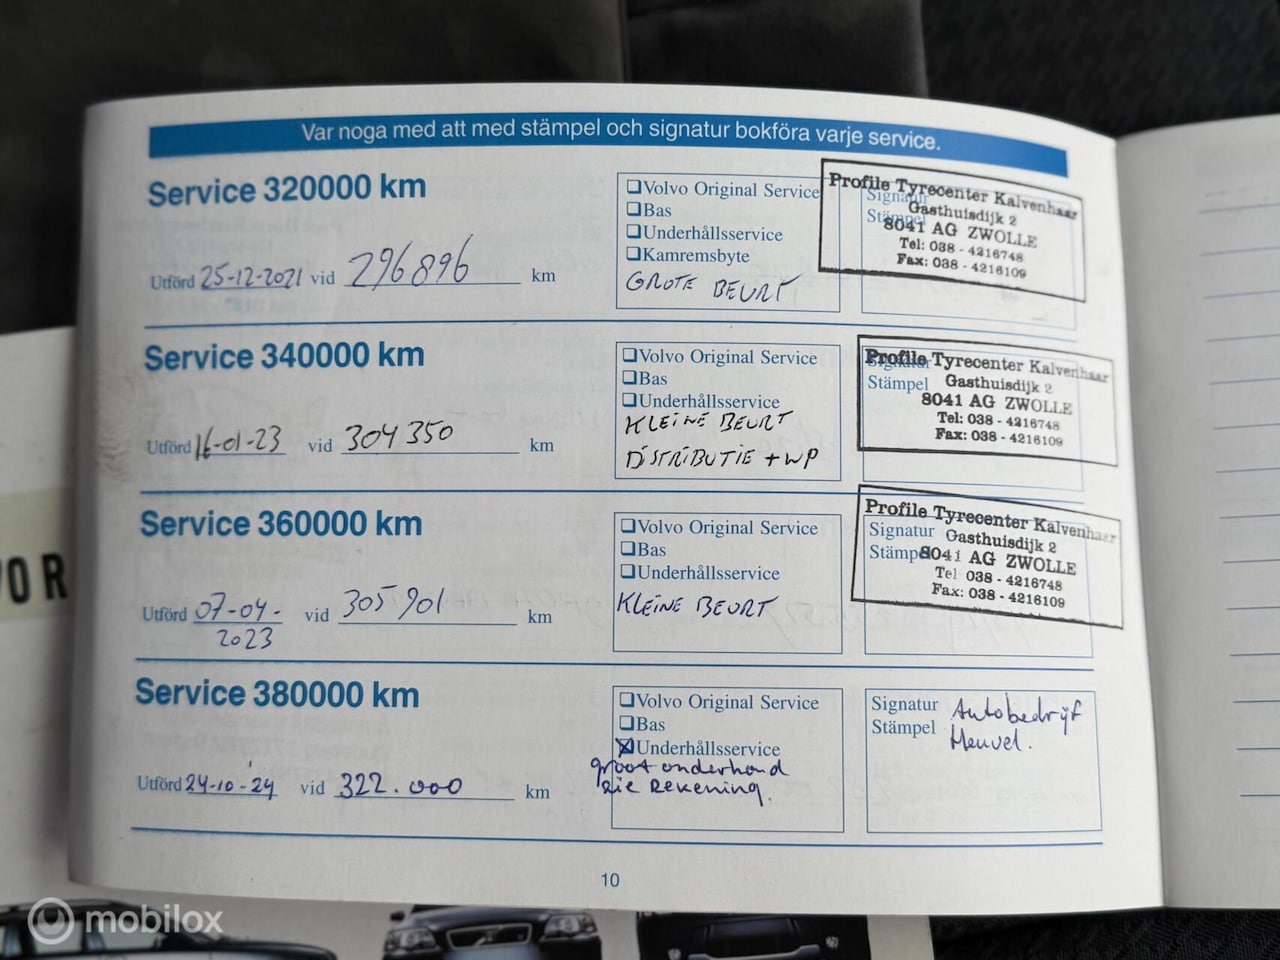 Var noga med att med stämpel och signatur bokföra varje service.
Service 320000 km
Utförd 25-12-2021 vid 296896 km
❑Volvo Original Service
❑Bas
❑Underhållsservice
❑Kamremsbyte
GROTE BEURT
Signatur
Stämpel
Profile Tyrecenter Kalvenhaar
Gasthuisdijk 2
8041 AG ZWOLLE
Tel: 038 - 4216748
Fax: 038 - 4216109
Service 340000 km
Utförd 16-01-23 vid 304350 km
❑Volvo Original Service
❑Bas
❑Underhållsservice
KLEINE BEURT
DISTRIBUTIE + WP
Signatur
Stämpel
Profile Tyrecenter Kalvenhaar
Gasthuisdijk 2
8041 AG ZWOLLE
Tel: 038 - 4216748
Fax: 038 - 4216109
Service 360000 km
Utförd 07-04-
2023
vid 305901 km
❑Volvo Original Service
❑Bas
❑Underhållsservice
KLEINE BEURT
Signatur
Stämpel
Profile Tyrecenter Kalvenhaar
Gasthuisdijk 2
8041 AG ZWOLLE
Tel: 038 - 4216748
Fax: 038 - 4216109
Service 380000 km
Utförd 24-10-'24 vid 322.000 km
❑Volvo Original Service
❑Bas
☒Underhållsservice
groot onderhoud
zie Rekening.
Signatur
Stämpel
Autobedrijf
Heuvel.
10
mobilox